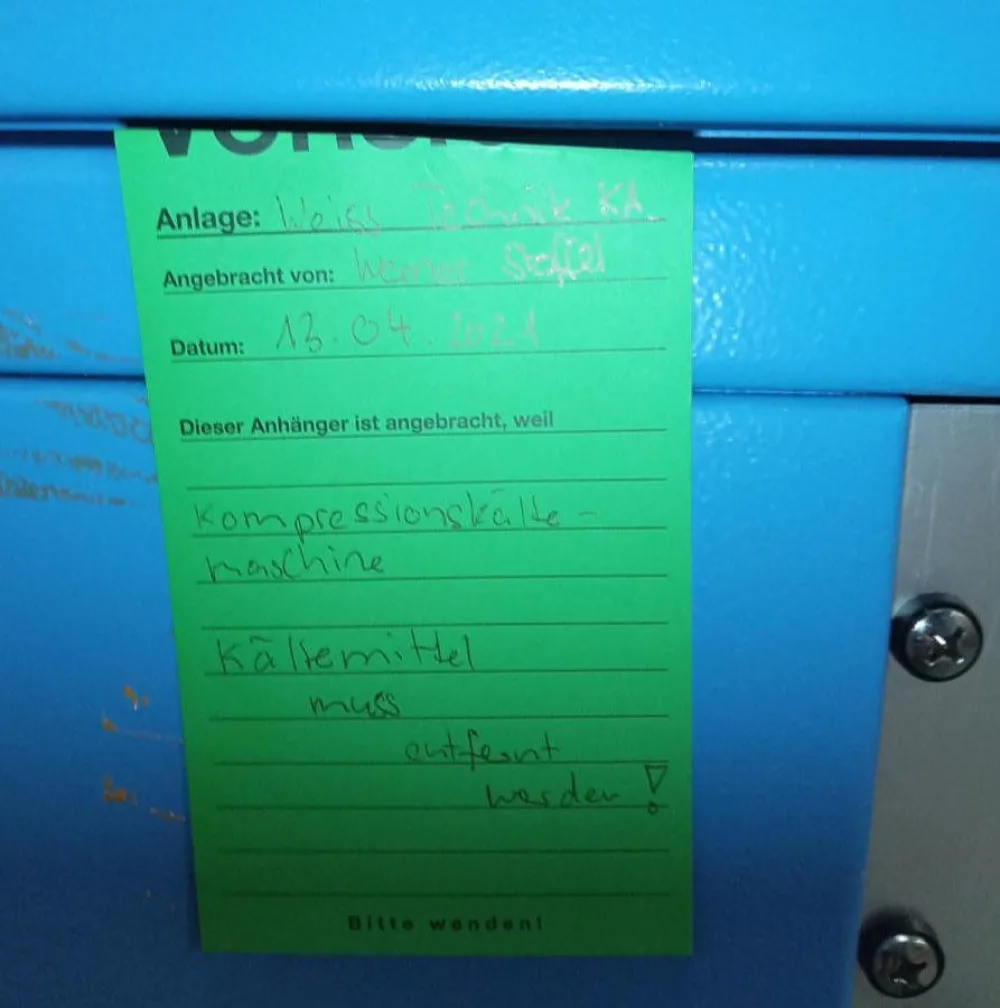 Anlage: Weiss Technik KA
Angebracht von: Werner Stoffel
Datum: 13.04.2021
Dieser Anhänger ist angebracht, weil
Kompressionskälte-
maschine
Kältemittel
muss
entfernt
werden!
Bitte wenden!